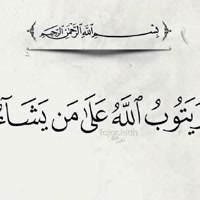 بِسْمِ ٱللَّهِ ٱلرَّحْمَٰنِ ٱلرَّحِيمِ
وَيَتُوبُ ٱللَّهُ عَلَىٰ مَن يَشَآءُ
fajar.hiah